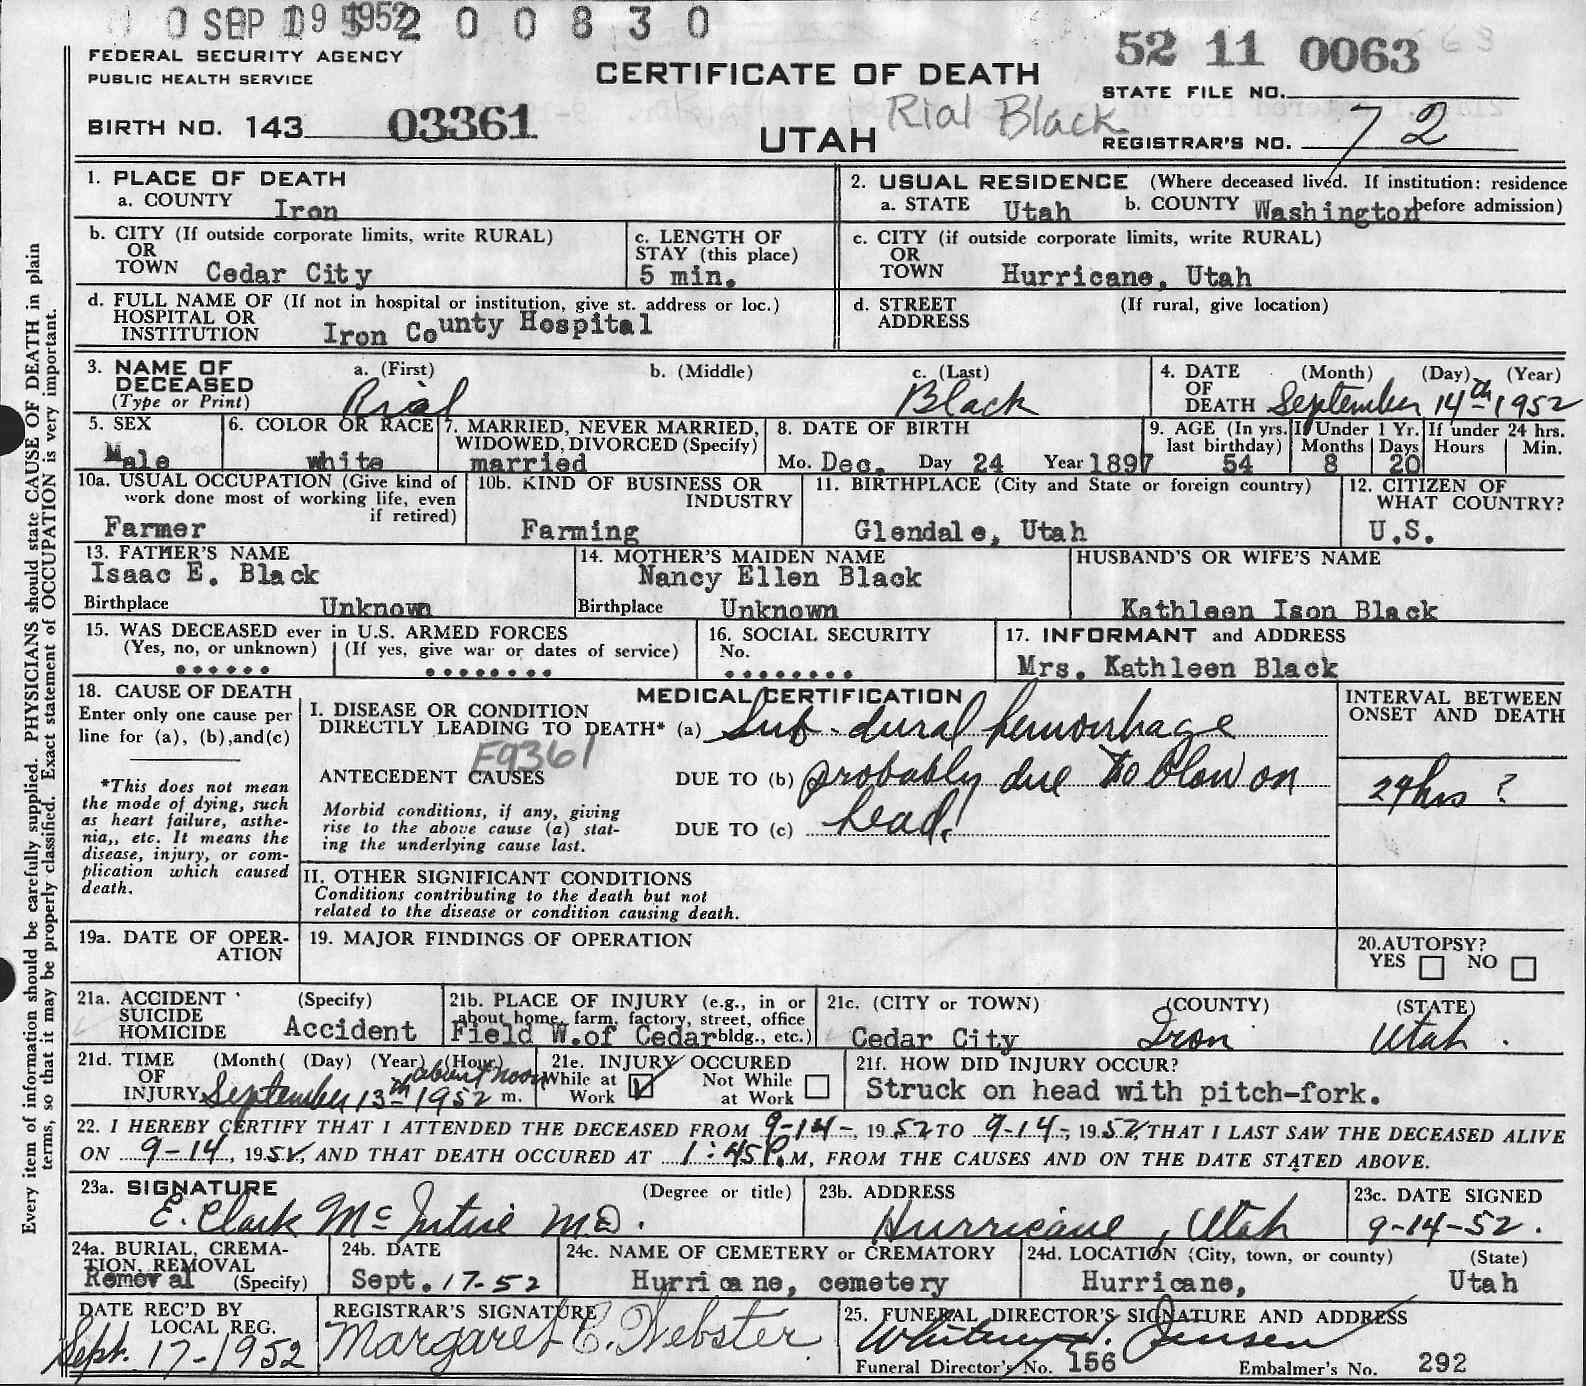 0 SEP 19 1952 2 0 0 8 3 0
52 11 0063
FEDERAL SECURITY AGENCY
PUBLIC HEALTH SERVICE
CERTIFICATE OF DEATH
STATE FILE NO.
Rial Black
BIRTH NO. 143 03361
UTAH
REGISTRAR'S NO. 72
Every item of information should be carefully supplied. PHYSICIANS should state CAUSE OF DEATH in plain
terms, so that it may be properly classified. Exact statement of OCCUPATION is very important.
1. PLACE OF DEATH
a. COUNTY Iron
2. USUAL RESIDENCE (Where deceased lived. If institution: residence
a. STATE Utah b. COUNTY Washington before admission)
b. CITY (If outside corporate limits, write RURAL)
OR
TOWN Cedar City
c. LENGTH OF
STAY (this place)
5 min.
c. CITY (if outside corporate limits, write RURAL)
OR
TOWN Hurricane, Utah
d. FULL NAME OF (If not in hospital or institution, give st. address or loc.)
HOSPITAL OR
INSTITUTION Iron County Hospital
d. STREET (If rural, give location)
ADDRESS
3. NAME OF
DECEASED
(Type or Print)
a. (First) b. (Middle) c. (Last)
Rial Black
4. DATE (Month) (Day) (Year)
OF
DEATH September 14th 1952
5. SEX
Male
6. COLOR OR RACE
white
7. MARRIED, NEVER MARRIED,
WIDOWED, DIVORCED (Specify)
married
8. DATE OF BIRTH
Mo. Dec. Day 24 Year 1897
9. AGE (In yrs.
last birthday)
54
If Under 1 Yr.
Months Days
8 20
If under 24 hrs.
Hours Min.
10a. USUAL OCCUPATION (Give kind of
work done most of working life, even
if retired)
Farmer
10b. KIND OF BUSINESS OR
INDUSTRY
Farming
11. BIRTHPLACE (City and State or foreign country)
Glendale, Utah
12. CITIZEN OF
WHAT COUNTRY?
U.S.
13. FATHER'S NAME
Isaac E. Black
Birthplace Unknown
14. MOTHER'S MAIDEN NAME
Nancy Ellen Black
Birthplace Unknown
HUSBAND'S OR WIFE'S NAME
Kathleen Ison Black
15. WAS DECEASED ever in U.S. ARMED FORCES
(Yes, no, or unknown) (If yes, give war or dates of service)
16. SOCIAL SECURITY
No.
17. INFORMANT and ADDRESS
Mrs. Kathleen Black
18. CAUSE OF DEATH
Enter only one cause per
line for (a), (b), and (c)
*This does not mean
the mode of dying, such
as heart failure, asthe-
nia,, etc. It means the
disease, injury, or com-
plication which caused
death.
MEDICAL CERTIFICATION
I. DISEASE OR CONDITION
DIRECTLY LEADING TO DEATH* (a) Sub-dural hemorrhage
F9361
ANTECEDENT CAUSES DUE TO (b) probably due to blow on
Morbid conditions, if any, giving
rise to the above cause (a) stat-
ing the underlying cause last.
DUE TO (c) head.
INTERVAL BETWEEN
ONSET AND DEATH
24 hrs ?
II. OTHER SIGNIFICANT CONDITIONS
Conditions contributing to the death but not
related to the disease or condition causing death.
19a. DATE OF OPER-
ATION
19. MAJOR FINDINGS OF OPERATION
20. AUTOPSY?
YES NO
21a. ACCIDENT (Specify)
SUICIDE
HOMICIDE Accident
21b. PLACE OF INJURY (e.g., in or
about home, farm, factory, street, office
bldg., etc.)
Field W. of Cedar
21c. (CITY or TOWN) (COUNTY) (STATE)
Cedar City Iron Utah.
21d. TIME (Month( (Day) (Year) (Hour)
OF
INJURY September 13th 1952 about noon m.
21e. INJURY OCCURED
While at Work Not While at Work
21f. HOW DID INJURY OCCUR?
Struck on head with pitch-fork.
22. I HEREBY CERTIFY THAT I ATTENDED THE DECEASED FROM 9-14-, 1952 TO 9-14-, 1952, THAT I LAST SAW THE DECEASED ALIVE
ON 9-14, 1952, AND THAT DEATH OCCURED AT 1:45 P.M, FROM THE CAUSES AND ON THE DATE STATED ABOVE.
23a. SIGNATURE (Degree or title)
E. Clark McIntire M.D.
23b. ADDRESS
Hurricane, Utah
23c. DATE SIGNED
9-14-52.
24a. BURIAL, CREMA-
TION, REMOVAL
(Specify)
Removal
24b. DATE
Sept. 17-52
24c. NAME OF CEMETERY or CREMATORY
Hurricane, cemetery
24d. LOCATION (City, town, or county) (State)
Hurricane, Utah
DATE REC'D BY
LOCAL REG.
Sept. 17-1952
REGISTRAR'S SIGNATURE
Margaret C. Webster
25. FUNERAL DIRECTOR'S SIGNATURE AND ADDRESS
Jensen
Funeral Director's No. 156 Embalmer's No. 292